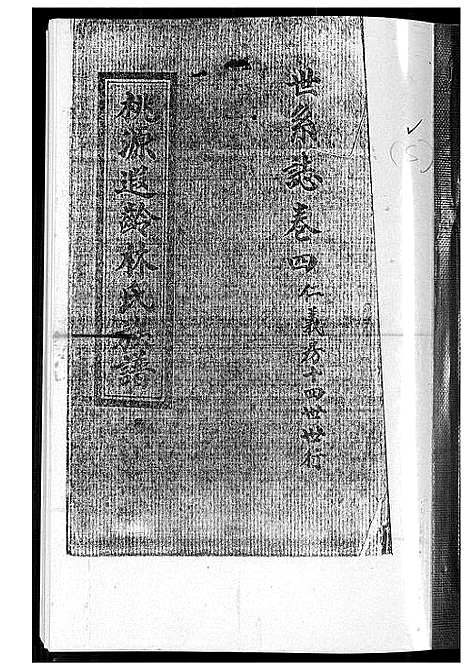 世系誌卷四 仁義房十四世世行
桃源遐齡林氏宗譜